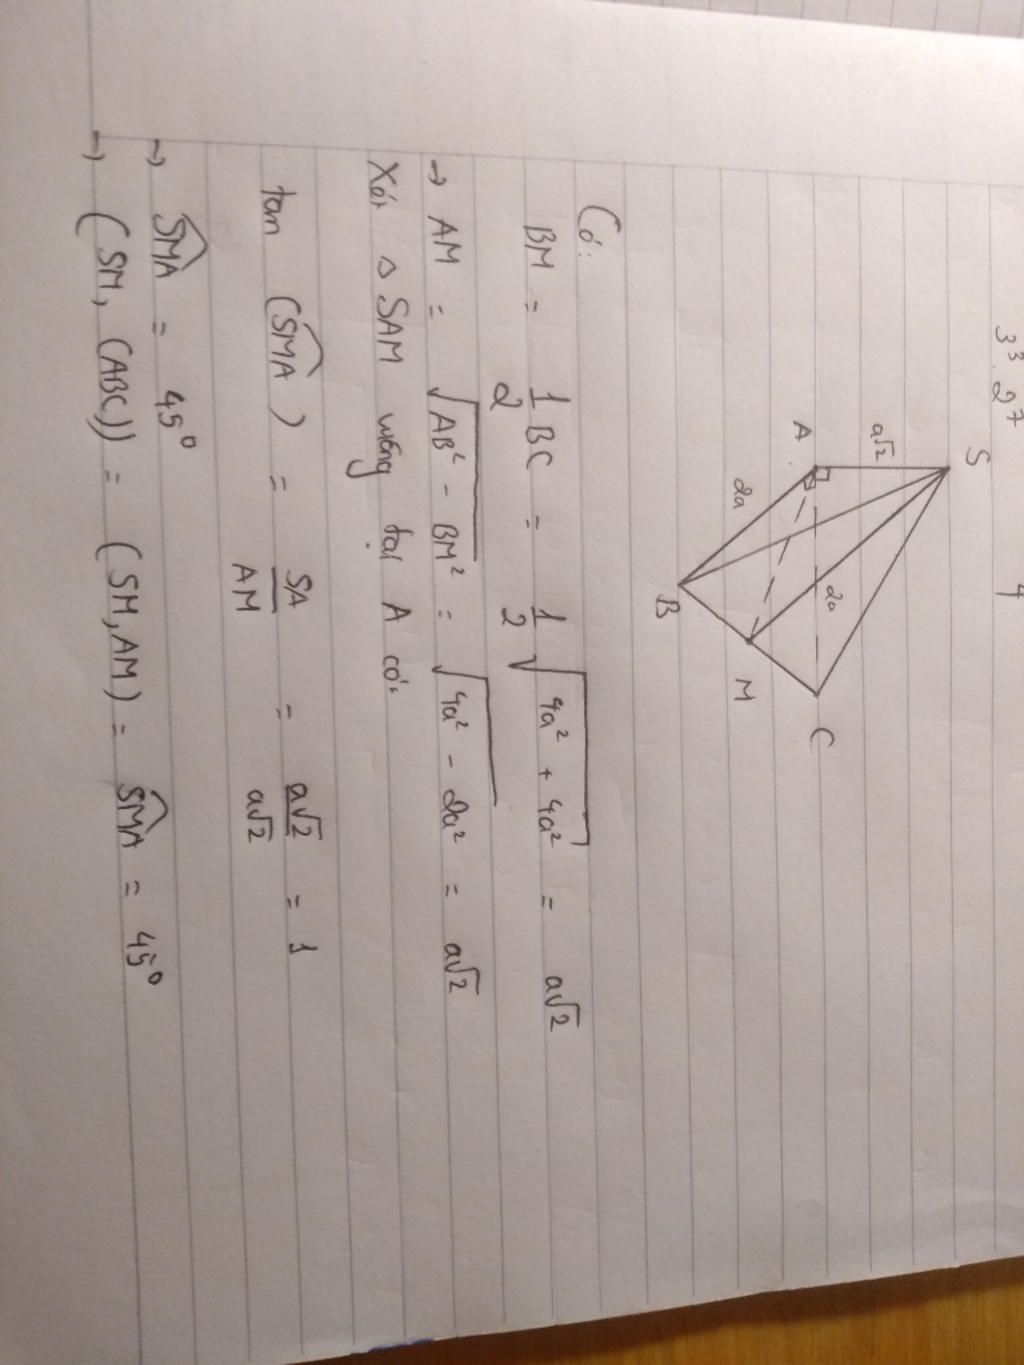 3³. 2⁷
S
a√2
A
2a
2a
B
M
C
Có:
BM = 1/2 BC = 1/2 √(4a² + 4a²) = a√2
→ AM = √(AB² - BM²) = √(4a² - 2a²) = a√2
Xét △ SAM vuông tại A có:
tan (SMA) = SA/AM = a√2/a√2 = 1
→ SMA = 45°
→ (SM, (ABC)) = (SM, AM) = SMA = 45°